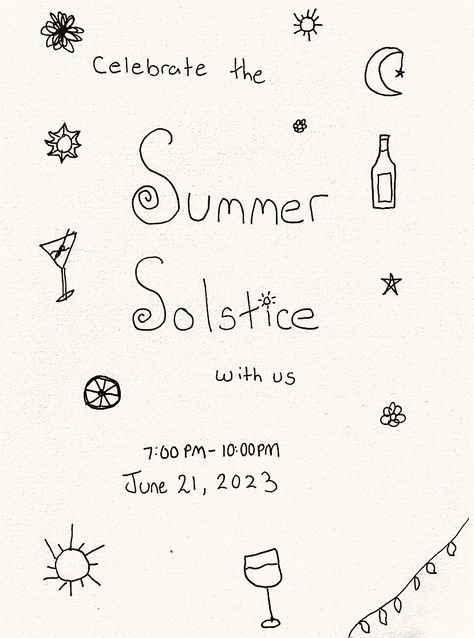 Celebrate the
Summer
Solstice
with us
7:00 PM - 10:00 PM
June 21, 2023